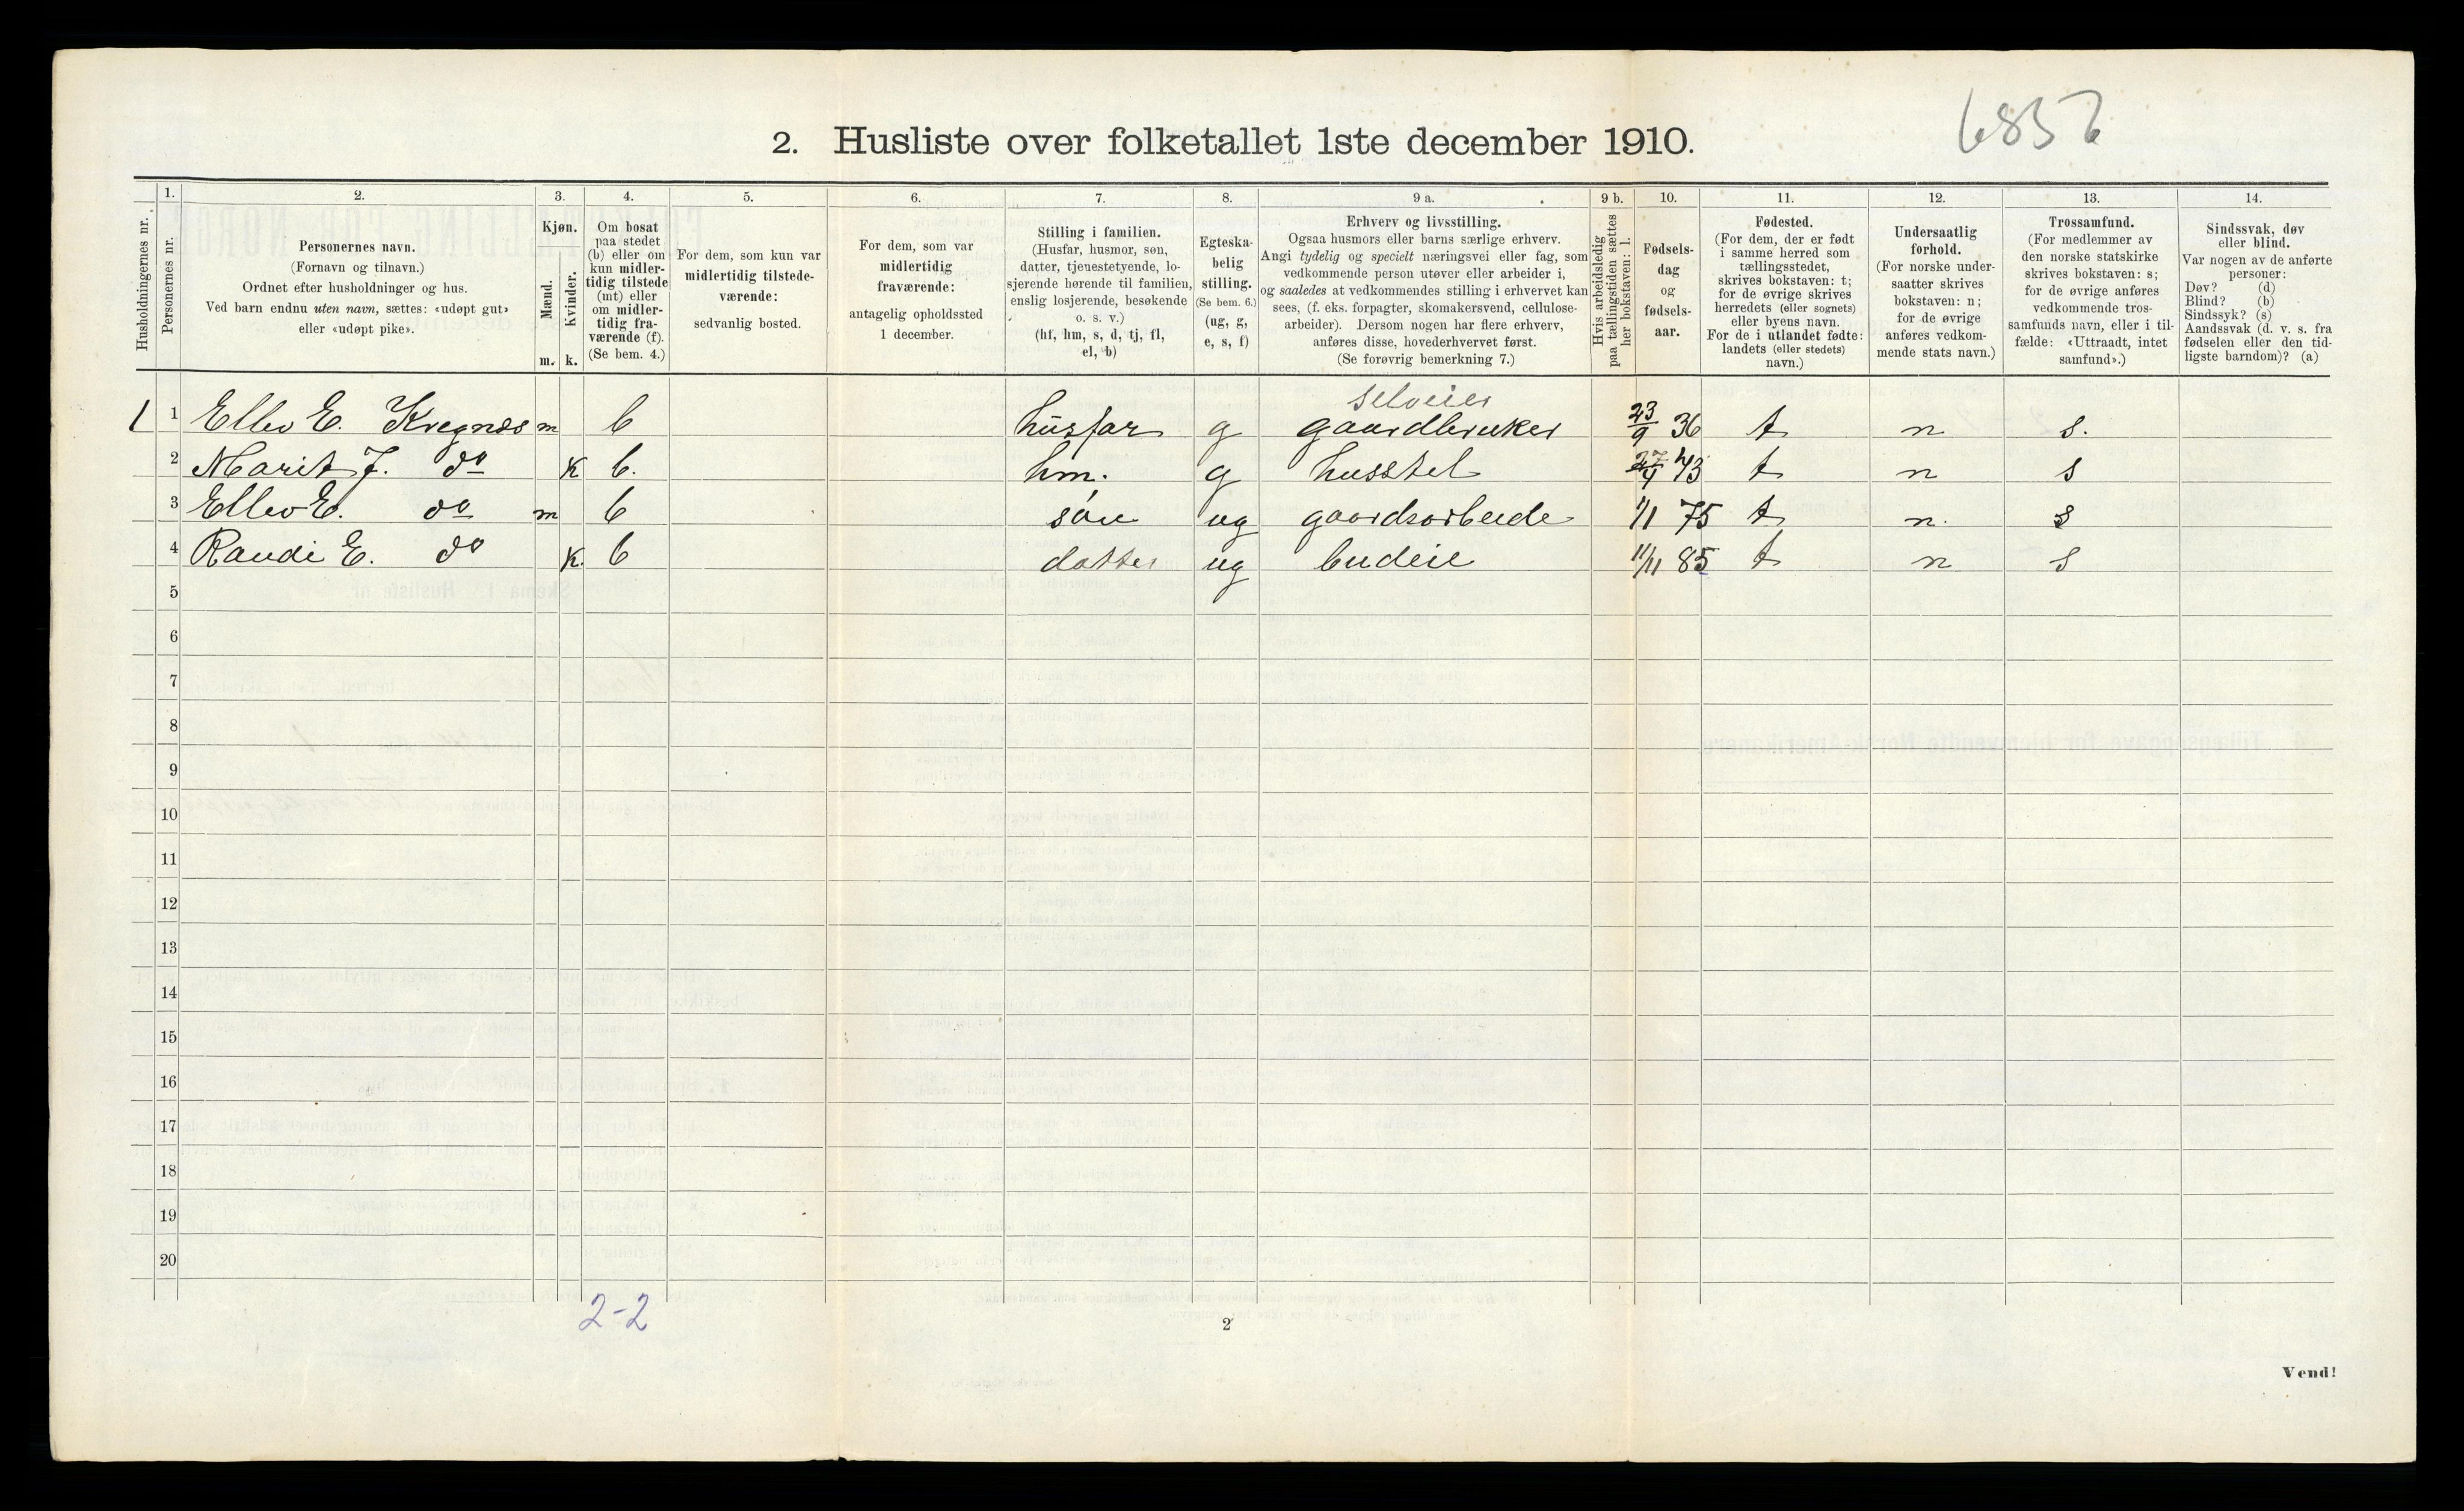 6857
2. Husliste over folketallet 1ste december 1910.
Husholdningernes nr.
1.
Personernes nr.
2.
Personernes navn.
(Fornavn og tilnavn.)
Ordnet efter husholdninger og hus.
Ved barn endnu uten navn, sættes: «udøpt gut»
eller «udøpt pike».
3.
Kjøn.
Mænd.
Kvinder.
m. k.
4.
Om bosat
paa stedet
(b) eller om
kun midler-
tidig tilstede
(mt) eller
om midler-
tidig fra-
værende (f).
(Se bem. 4.)
5.
For dem, som kun var
midlertidig tilstede-
værende:
sedvanlig bosted.
6.
For dem, som var
midlertidig
fraværende:
antagelig opholdssted
1 december.
7.
Stilling i familien.
(Husfar, husmor, søn,
datter, tjenestetyende, lo-
sjerende hørende til familien,
enslig losjerende, besøkende
o. s. v.)
(hf, hm, s, d, tj, fl,
el, b)
8.
Egteska-
belig
stilling.
(Se bem. 6.)
(ug, g,
e, s, f)
9 a.
Erhverv og livsstilling.
Ogsaa husmors eller barns særlige erhverv.
Angi tydelig og specielt næringsvei eller fag, som
vedkommende person utøver eller arbeider i,
og saaledes at vedkommendes stilling i erhvervet kan
sees, (f. eks. forpagter, skomakersvend, cellulose-
arbeider). Dersom nogen har flere erhverv,
anføres disse, hovederhvervet først.
(Se forøvrig bemerkning 7.)
9 b.
Hvis arbeidsledig
paa tællingstiden sættes
her bokstaven: l.
10.
Fødsels-
dag
og
fødsels-
aar.
11.
Fødested.
(For dem, der er født
i samme herred som
tællingsstedet,
skrives bokstaven: t;
for de øvrige skrives
herredets (eller sognets)
eller byens navn.
For de i utlandet fødte:
landets (eller stedets)
navn.)
12.
Undersaatlig
forhold.
(For norske under-
saatter skrives
bokstaven: n;
for de øvrige
anføres vedkom-
mende stats navn.)
13.
Trossamfund.
(For medlemmer av
den norske statskirke
skrives bokstaven: s;
for de øvrige anføres
vedkommende tros-
samfunds navn, eller i til-
fælde: «Uttraadt, intet
samfund».)
14.
Sindssvak, døv
eller blind.
Var nogen av de anførte
personer:
Døv? (d)
Blind? (b)
Sindssyk? (s)
Aandssvak (d. v. s. fra
fødselen eller den tid-
ligste barndom)? (a)
selveier
1 1 Ellev E. Kvegnæs m b husfar g gaardbruker 23/9 36 t n s.
2 Marit J. do k b. hm. g husstel 27/4 43 t n s
3 Ellev E. do m b søn ug gaardsarbeide 1/1 75 t n. s
4 Randi E. do k. b datter ug budeie 11/11 85 t n s
5
6
7
8
9
10
11
12
13
14
15
16
17
18
19
20
2-2
2
Vend!